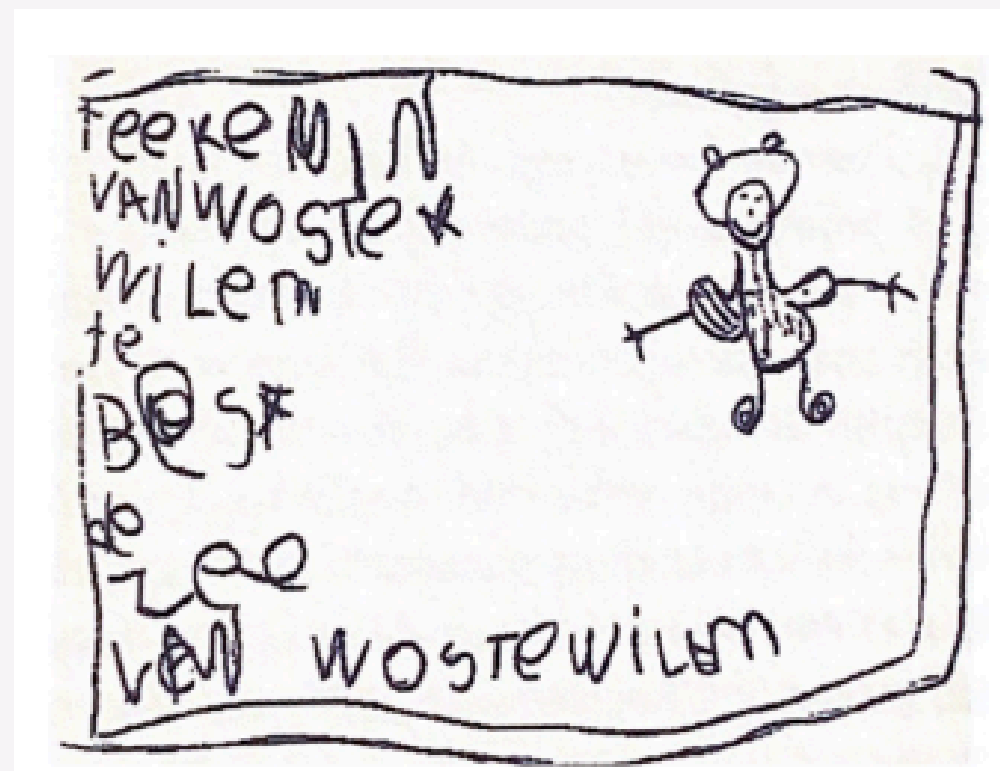 teekeNiN
VANWOSTe
WiLem
te
BeS
de
Zee
VAN WOSTeWiLem